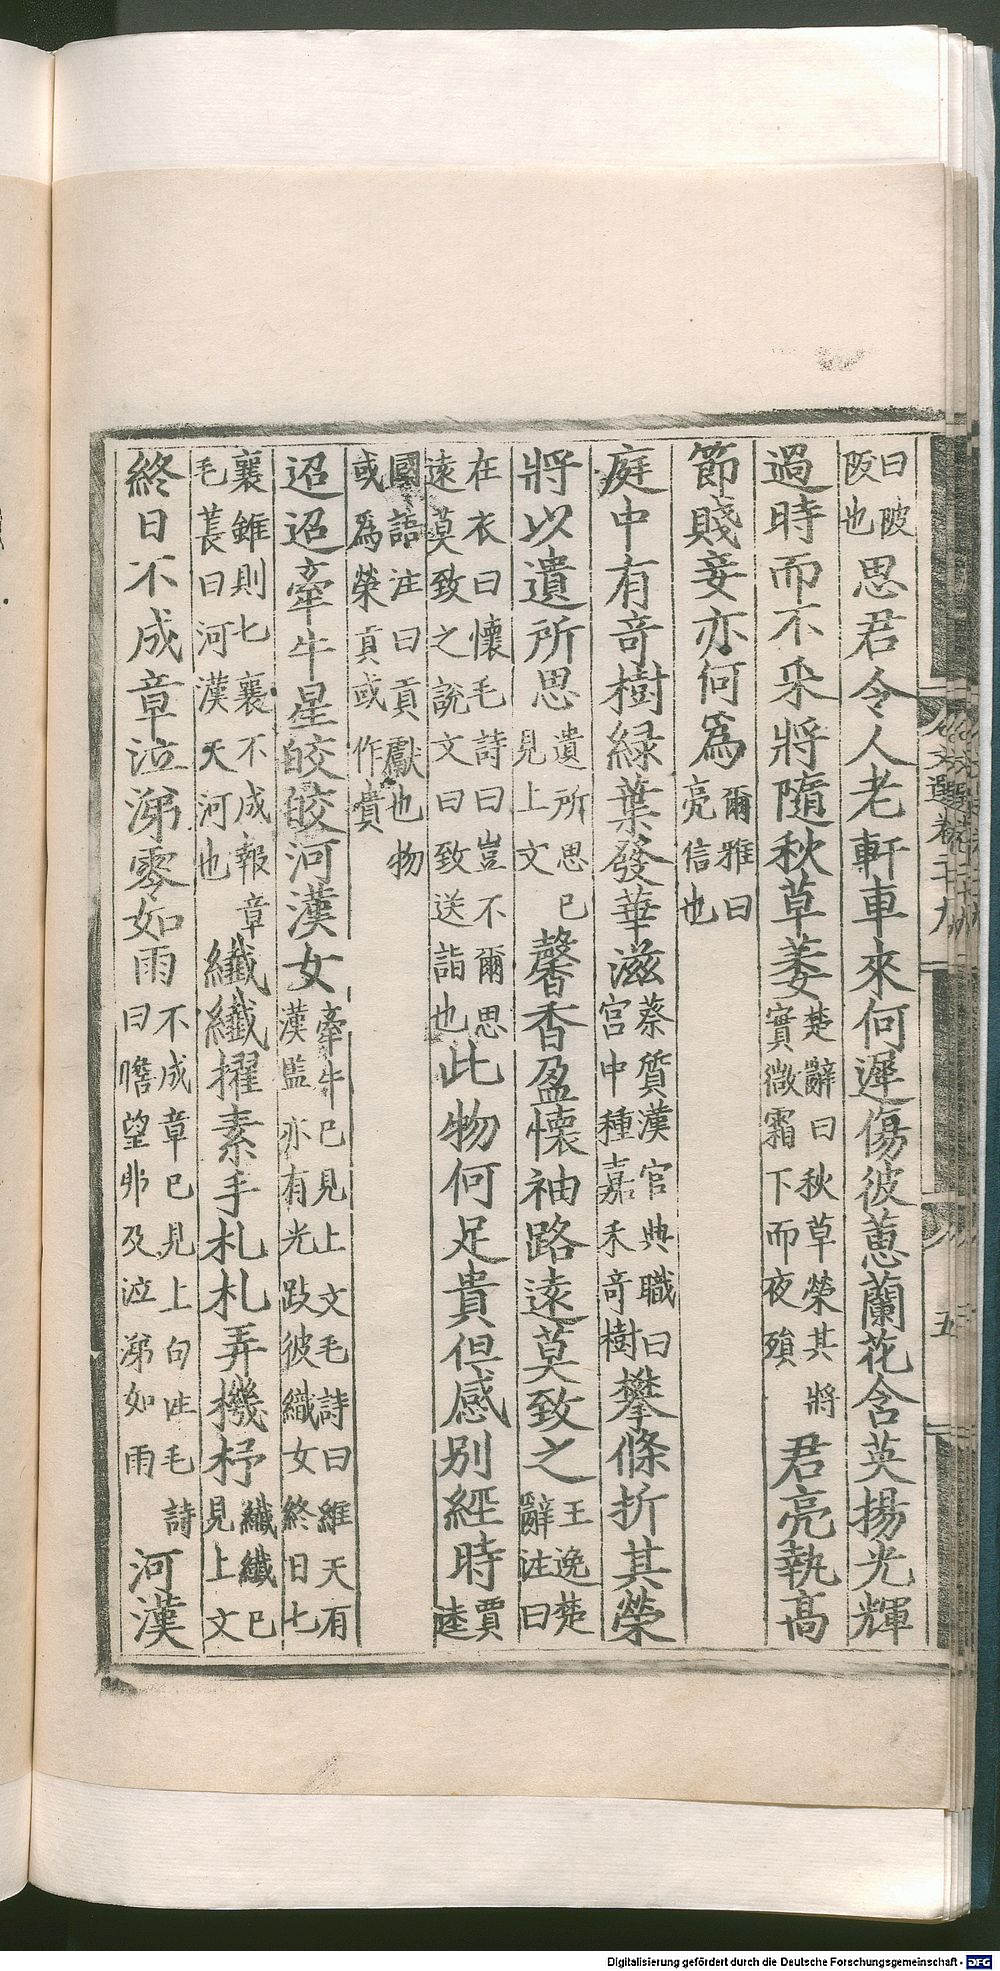 曰陂阪也思君令人老軒車來何遲傷彼蕙蘭花含英揚光輝
過時而不采將隨秋草萎楚辭曰秋草榮其將實微霜下而夜殞君亮執高
節賤妾亦何爲爾雅曰亮信也
庭中有奇樹緑葉發華滋蔡質漢官典職曰宮中種嘉禾奇樹攀條折其榮
將以遺所思遺所思已見上文馨香盈懷袖路遠莫致之王逸楚辭注曰
在衣曰懷毛詩曰豈不爾思遠莫致之說文曰致送詣也此物何足貴但感别經時賈逵
國語注曰貢獻也物或爲榮貢或作貴
迢迢牽牛星皎皎河漢女牽牛已見上文毛詩曰維天有漢監亦有光跂彼織女終日七
襄雖則七襄不成報章毛萇曰河漢天河也纖纖擢素手札札弄機杼纖纖已見上文
終日不成章泣涕零如雨不成章已見上句注毛詩曰瞻望弗及泣涕如雨河漢
文選卷二十九
五
Digitalisierung gefördert durch die Deutsche Forschungsgemeinschaft - DFG